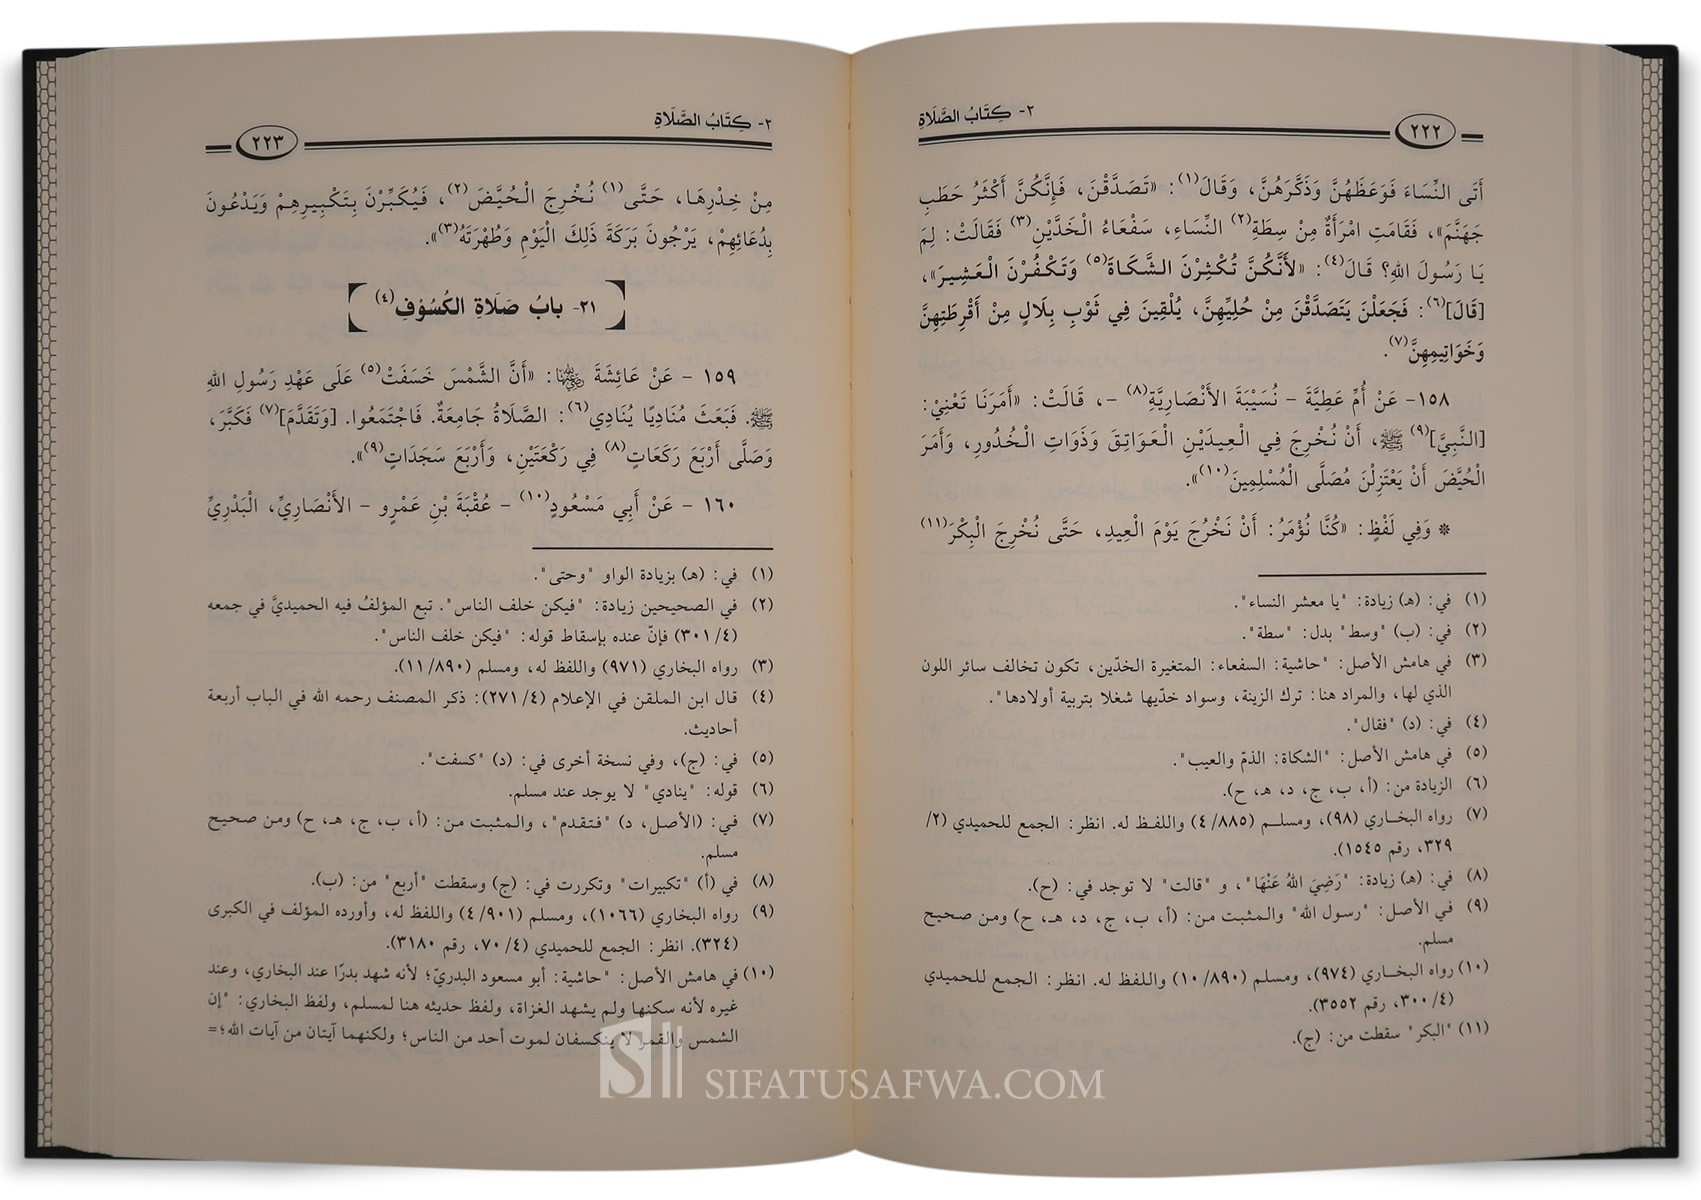 ٢- كِتَابُ الصَّلَاةِ
٢٢٢
أَتَى النِّسَاءَ فَوَعَظَهُنَّ وَذَكَّرَهُنَّ، وَقَالَ(١): «تَصَدَّقْنَ، فَإِنَّكُنَّ أَكْثَرُ حَطَبِ
جَهَنَّمَ»، فَقَامَتِ امْرَأَةٌ مِنْ سِطَةِ(٢) النِّسَاءِ، سَفْعَاءُ الْخَدَّيْنِ(٣) فَقَالَتْ: لِمَ
يَا رَسُولَ اللهِ؟ قَالَ(٤): «لأَنَّكُنَّ تُكْثِرْنَ الشَّكَاةَ(٥) وَتَكْفُرْنَ الْعَشِيرَ»،
[قَالَ](٦): فَجَعَلْنَ يَتَصَدَّقْنَ مِنْ حُلِيِّهِنَّ، يُلْقِينَ فِي ثَوْبِ بِلَالٍ مِنْ أَقْرِطَتِهِنَّ
وَخَوَاتِيمِهِنَّ(٧).
١٥٨- عَنْ أُمِّ عَطِيَّةَ - نُسَيْبَةَ الأَنْصَارِيَّةِ(٨) -، قَالَتْ: «أَمَرَنَا تَعْنِيْ:
[النَّبِيَّ](٩) ﷺ، أَنْ نُخْرِجَ فِي الْعِيدَيْنِ الْعَوَاتِقَ وَذَوَاتِ الْخُدُورِ، وَأَمَرَ
الْحُيَّضَ أَنْ يَعْتَزِلْنَ مُصَلَّى الْمُسْلِمِينَ(١٠)».
* وَفِي لَفْظٍ: «كُنَّا نُؤْمَرُ: أَنْ نَخْرُجَ يَوْمَ الْعِيدِ، حَتَّى نُخْرِجَ الْبِكْرَ(١١)
(١) في: (هـ) زيادة: "يا معشر النساء".
(٢) في: (ب) "وسط" بدل: "سطة".
(٣) في هامش الأصل: "حاشية: السفعاء: المتغيرة الخدّين، تكون تخالف سائر اللون
الذي لها، والمراد هنا: ترك الزينة، وسواد خدّيها شغلا بتربية أولادها".
(٤) في: (د) "فقال".
(٥) في هامش الأصل: "الشكاة: الذمّ والعيب".
(٦) الزيادة من: (أ، ب، ج، د، هـ، ح).
(٧) رواه البخاري (٩٨)، ومسلم (٤/٨٨٥) واللفظ له. انظر: الجمع للحميدي (٢/
٣٢٩، رقم ١٥٤٥).
(٨) في: (هـ) زيادة: "رَضِيَ اللهُ عَنْهَا"، و "قالت" لا توجد في: (ح).
(٩) في الأصل: "رسول الله" والمثبت من: (أ، ب، ج، د، هـ، ح) ومن صحيح
مسلم.
(١٠) رواه البخاري (٩٧٤)، ومسلم (١٠/٨٩٠) واللفظ له. انظر: الجمع للحميدي
(٣٠٠/٤، رقم ٣٥٥٢).
(١١) "البكر" سقطت من: (ج).
٢- كِتَابُ الصَّلَاةِ
٢٢٣
مِنْ خِدْرِهَا، حَتَّى(١) نُخْرِجَ الْحُيَّضَ(٢)، فَيُكَبِّرْنَ بِتَكْبِيرِهِمْ وَيَدْعُونَ
بِدُعَائِهِمْ، يَرْجُونَ بَرَكَةَ ذَلِكَ الْيَوْمِ وَطُهْرَتَهُ(٣)».
٢١- بابُ صَلَاةِ الكُسُوْفِ(٤)
١٥٩ - عَنْ عَائِشَةَ رضي الله عنها: «أَنَّ الشَّمْسَ خَسَفَتْ(٥) عَلَى عَهْدِ رَسُولِ اللهِ
ﷺ. فَبَعَثَ مُنَادِيًا يُنَادِي(٦): الصَّلَاةُ جَامِعَةٌ. فَاجْتَمَعُوا. [وَتَقَدَّمَ](٧) فَكَبَّرَ،
وَصَلَّى أَرْبَعَ رَكَعَاتٍ(٨) فِي رَكْعَتَيْنِ، وَأَرْبَعَ سَجَدَاتٍ(٩)».
١٦٠ - عَنْ أَبِي مَسْعُودٍ(١٠) - عُقْبَةَ بْنِ عَمْرٍو - الأَنْصَارِيِّ، الْبَدْرِيِّ
(١) في: (هـ) بزيادة الواو "وحتى".
(٢) في الصحيحين زيادة: "فيكن خلف الناس". تبع المؤلفُ فيه الحميديَّ في جمعه
(٣٠١/٤) فإنّ عنده بإسقاط قوله: "فيكن خلف الناس".
(٣) رواه البخاري (٩٧١) واللفظ له، ومسلم (١١/٨٩٠).
(٤) قال ابن الملقن في الإعلام (٢٧١/٤): ذكر المصنف رحمه الله في الباب أربعة
أحاديث.
(٥) في: (ج)، وفي نسخة أخرى في: (د) "كسفت".
(٦) قوله: "ينادي" لا يوجد عند مسلم.
(٧) في: (الأصل، د) "فتقدم"، والمثبت من: (أ، ب، ج، هـ، ح) ومن صحيح
مسلم.
(٨) في (أ) "تكبيرات" وتكررت في: (ج) وسقطت "أربع" من: (ب).
(٩) رواه البخاري (١٠٦٦)، ومسلم (٤/٩٠١) واللفظ له، وأورده المؤلف في الكبرى
(٣٢٤). انظر: الجمع للحميدي (٧٠/٤، رقم ٣١٨٠).
(١٠) في هامش الأصل: "حاشية: أبو مسعود البدريّ؛ لأنه شهد بدرًا عند البخاري، وعند
غيره لأنه سكنها ولم يشهد الغزاة، ولفظ حديثه هنا لمسلم، ولفظ البخاري: "إن
الشمس والقمر لا ينكسفان لموت أحد من الناس؛ ولكنهما آيتان من آيات الله؛=
SIFATUSAFWA.COM